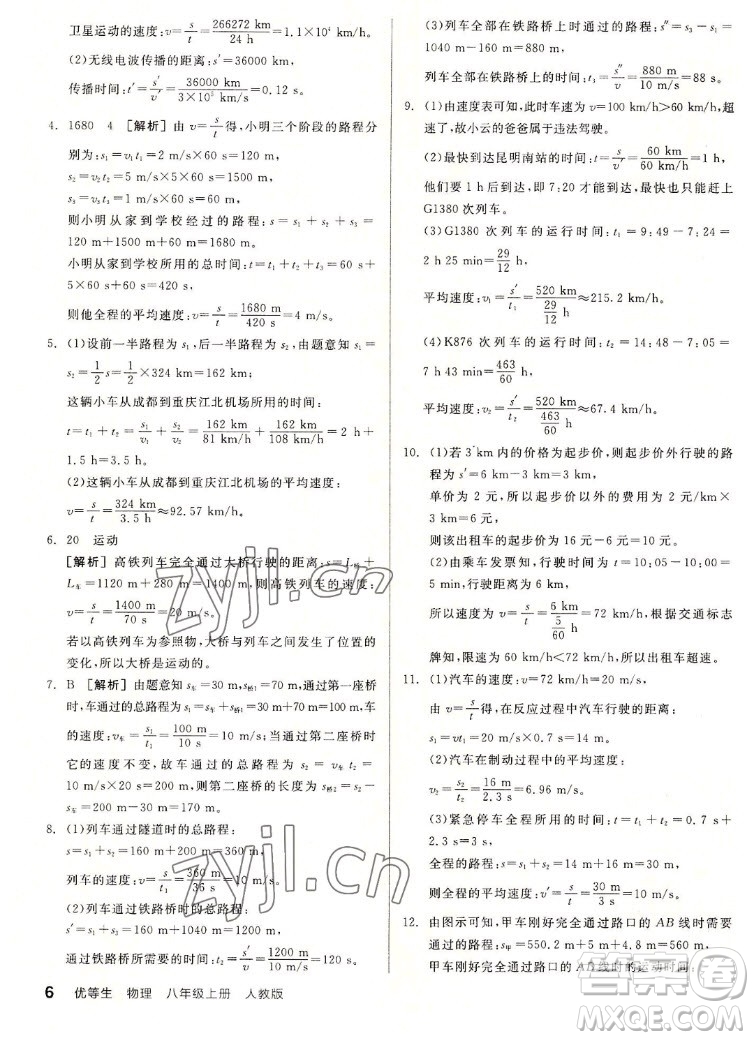 卫星运动的速度:v=s/t=266272 km/24 h=1.1×10⁴ km/h。
(2)无线电波传播的距离:s′=36000 km,
传播时间:t′=s′/v′=36000 km/3×10⁵ km/s=0.12 s。
4. 1680 4 [解析] 由 v=s/t得,小明三个阶段的路程分
别为:s₁=2 m/s×60 s=120 m,
s₂=v₂t₂=5 m/s×5×60 s=1500 m,
s₃=v₃t₃=1 m/s×60 s=60 m,
则小明从家到学校经过的路程:s=s₁+s₂+s₃=
120 m+1500 m+60 m=1680 m。
小明从家到学校所用的总时间:t=60 s+5×
60 s+60 s=420 s,
则他全程的平均速度:v=s/t=1680 m/420 s=4 m/s。
5. (1)设前一半路程为 s₁,后一半路程为 s₂,由题意知
s₁=s₂=1/2s=1/2×324 km=162 km,
这辆小车从成都到重庆江北机场所用的时间:
t=t₁+t₂=s₁/v₁+s₂/v₂=162 km/81 km/h+162 km/108 km/h=2 h+
1.5 h=3.5 h。
(2)这辆小车从成都到重庆江北机场的平均速度:
v=s/t=324 km/3.5 h≈92.57 km/h。
6. 20 运动
[解析] 高铁列车完全通过大桥行驶的距离:s=L桥+
L车=1120 m+280 m=1400 m,则高铁列车的速度:
v=s/t=1400 m/70 s=20 m/s。
若以高铁列车为参照物,大桥与列车之间发生了位置的
变化,所以大桥是运动的。
7. B [解析] 由题意知 s车=30 m,通过第一座桥
时,车通过的总路程为 s₁=s车+s桥1=30 m+70 m=100 m,
车的速度:v车=s₁/t₁=100 m/10 s=10 m/s,通过第二座桥时
它的速度不变,故车通过的总路程
s₂=v车t₂=10 m/s×20 s=200 m,则第二座桥的长度为 s桥2=s₂-s车=200 m-30 m=170 m。
8. (1)列车通过隧道时的总路程:
s=s₁+s₂=160 m+200 m=360 m,
列车的速度:v=s/t₁=360 m/36 s=10 m/s。
(2)列车通过铁路桥时的总路程:
s′=s₁+s₃=160 m+1040 m=1200 m,
通过铁路桥的时间:t₂=s′/v=1200 m/10 m/s=120 s。
(3)列车全部在铁路桥上时通过的路程:s″=s₃-s₁=
1040 m-160 m=880 m,
列车全部在铁路桥上的时间:t₃=s″/v=880 m/10 m/s=88 s。
9. (1)由速度表可知,此时车速 v=100 km/h>60 km/h,超
速了,故小云的爸爸属于违法驾驶。
(2)最快到达昆明南站的时间:t=s/v′=60 km/60 km/h=1 h,
他们要 1 h 后到达,即 7:20 才能到达,因此不能赶上
G1380 次列车。
(3)G1380 次列车的运行时间:t₁=9:49-7:24=
2 h 25 min=29/12 h,
平均速度:v₁=s′/t₁=520 km/29/12 h≈215.2 km/h。
(4)K876 次列车的运行时间:t₂=14:48-7:05=
7 h 43 min=463/60 h,
平均速度:v₂=s′/t₂=520 km/463/60 h≈67.4 km/h。
10. (1)若 3 km 内的价格为起步价,则起步价外行驶的路
程 s′=6 km-3 km=3 km,
单价为 2 元,所以起步价以外的费用为 2 元/km×
3 km=6 元,
则该出租车的起步价为 16 元-6 元=10 元。
(2)由乘车发票知,行驶时间为 t=10:05-10:00=
5 min,行驶距离为 6 km,
所以速度为 v=s/t=6 km/5/60 h=72 km/h,根据交通标志
牌知,限速为 60 km/h<72 km/h,所以出租车超速。
11. (1)汽车的速度:v=72 km/h=20 m/s,
由 v=s/t得,在反应过程中汽车行驶的距离:
s₁=vt₁=20 m/s×0.7 s=14 m。
(2)汽车在制动过程中的平均速度:
v₂=s₂/t₂=16 m/2.3 s≈6.96 m/s。
(3)紧急停车全程所用的时间:t=t₁+t₂=0.7 s+
2.3 s=3 s,
全程的路程:s=s₁+s₂=14 m+16 m=30 m,
则全程的平均速度:v′=s/t=30 m/3 s=10 m/s。
12. 由图示可知,甲车刚好完全通过路口的 AB 线时需要
通过的路程:s甲=550.2 m+5 m+4.8 m=560 m,
甲车刚好完全通过路口的 AB 线的运动时间:
6 优等生 物理 八年级上册 人教版
zyjl.cn
zyjl.cn
作业精灵